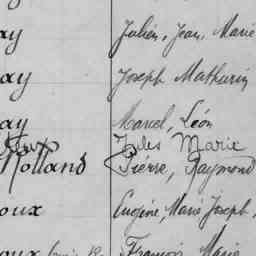 ay Julien, Jean, Marie
ay Joseph Mathurin
ay Marcel, Léon
Jules Marie
Rolland Pierre, Raymond
oux Eugène, Marie Joseph,
oux François, Marie